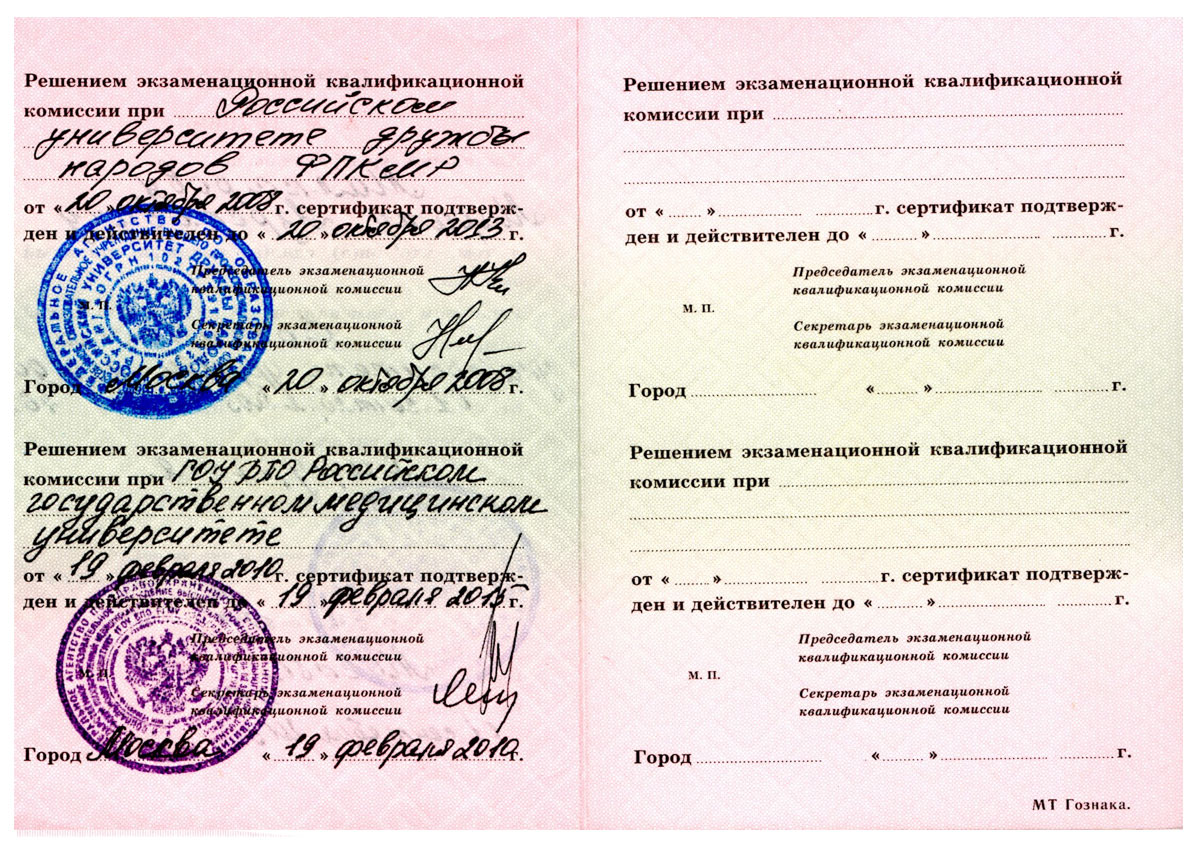 Решением экзаменационной квалификационной
комиссии при Российском
университете дружбы
народов ФПКМР
от « 20 » октября 2008 г. сертификат подтверж-
ден и действителен до « 20 » октября 2013 г.
Председатель экзаменационной
квалификационной комиссии
М. П.
Секретарь экзаменационной
квалификационной комиссии
Город Москва « 20 » октября 2008 г.
Решением экзаменационной квалификационной
комиссии при ГОУ ВПО Российском
государственном медицинском
университете
от « 19 » февраля 2010 г. сертификат подтверж-
ден и действителен до « 19 » февраля 2015 г.
Председатель экзаменационной
квалификационной комиссии
М. П.
Секретарь экзаменационной
квалификационной комиссии
Город Москва « 19 » февраля 2010 г.
Решением экзаменационной квалификационной
комиссии при
от « » г. сертификат подтверж-
ден и действителен до « » г.
Председатель экзаменационной
квалификационной комиссии
М. П.
Секретарь экзаменационной
квалификационной комиссии
Город « » г.
Решением экзаменационной квалификационной
комиссии при
от « » г. сертификат подтверж-
ден и действителен до « » г.
Председатель экзаменационной
квалификационной комиссии
М. П.
Секретарь экзаменационной
квалификационной комиссии
Город « » г.
МТ Гознака.